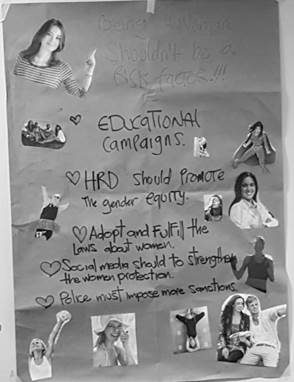 Being a Woman
Shouldn't be a
Risk factor!!!
EDUCATIONAL
Campaigns.
HRD should Promote
The gender equity.
Adopt and Fulfill the
Laws about women.
Social media should to strengthen
the women protection.
Police must impose more sanctions